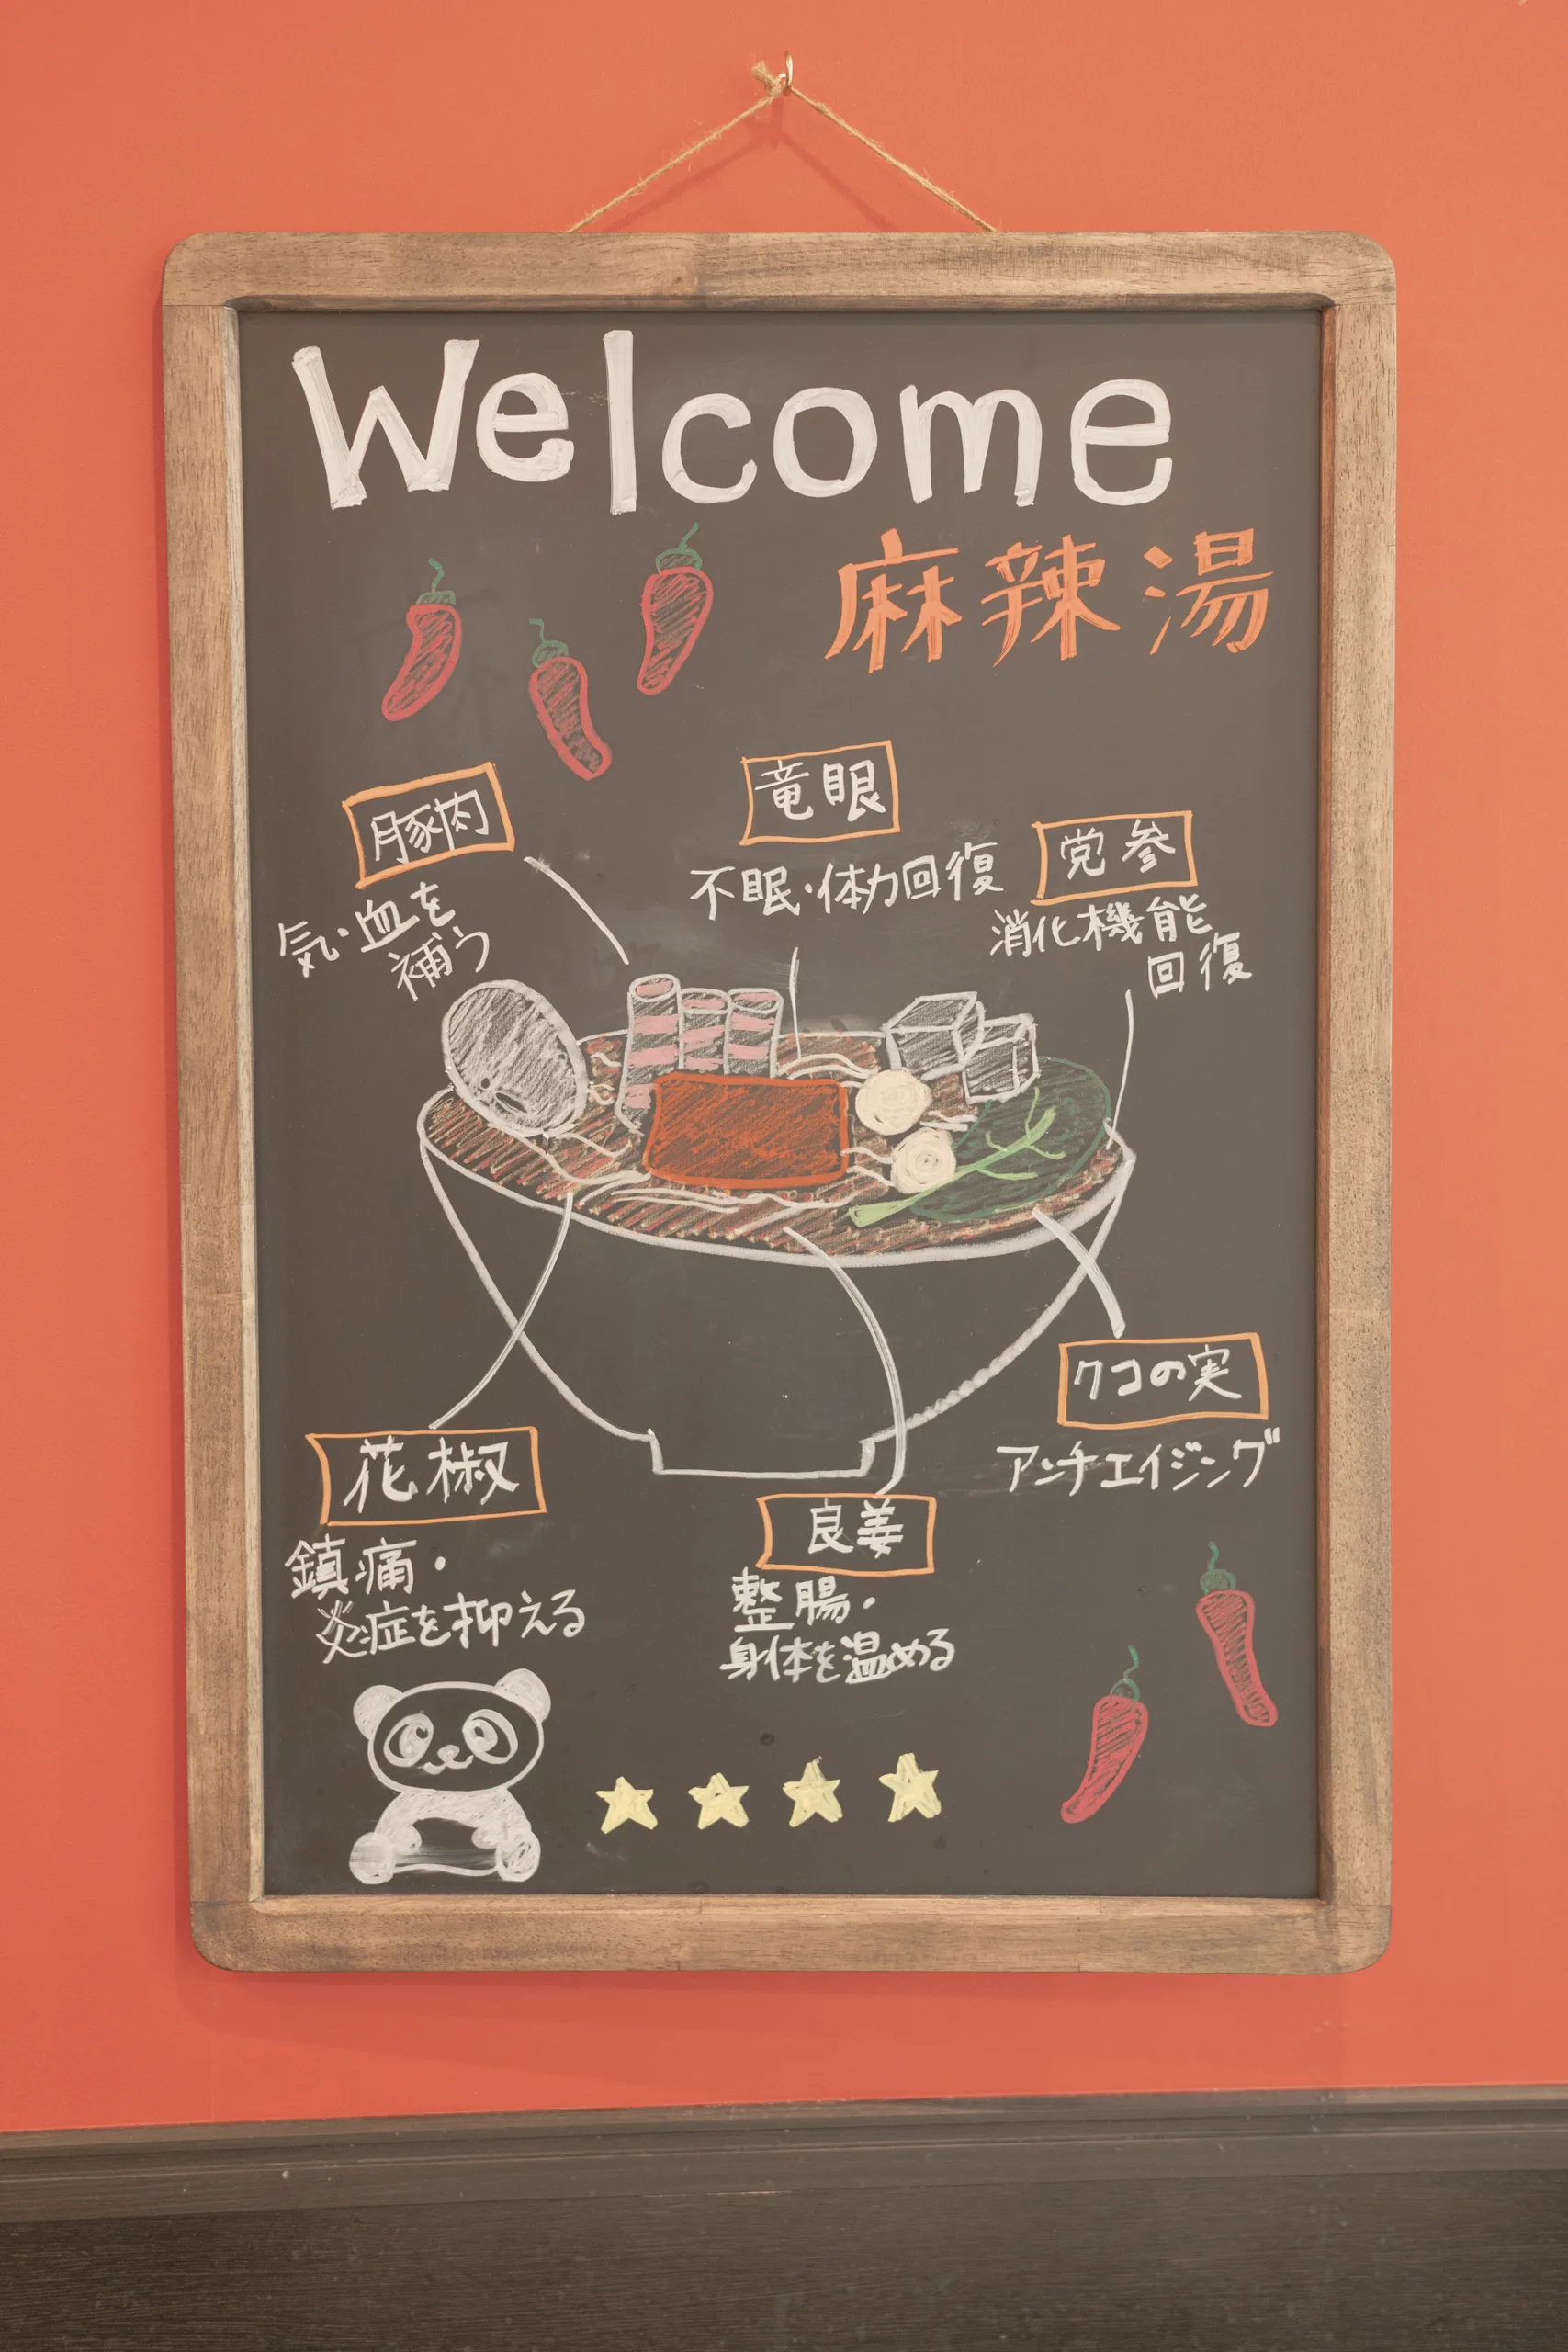 Welcome
麻辣湯
豚肉
気・血を
補う
竜眼
不眠・体力回復
党参
消化機能
回復
クコの実
アンチエイジング
花椒
鎮痛・
炎症を抑える
良姜
整腸・
身体を温める